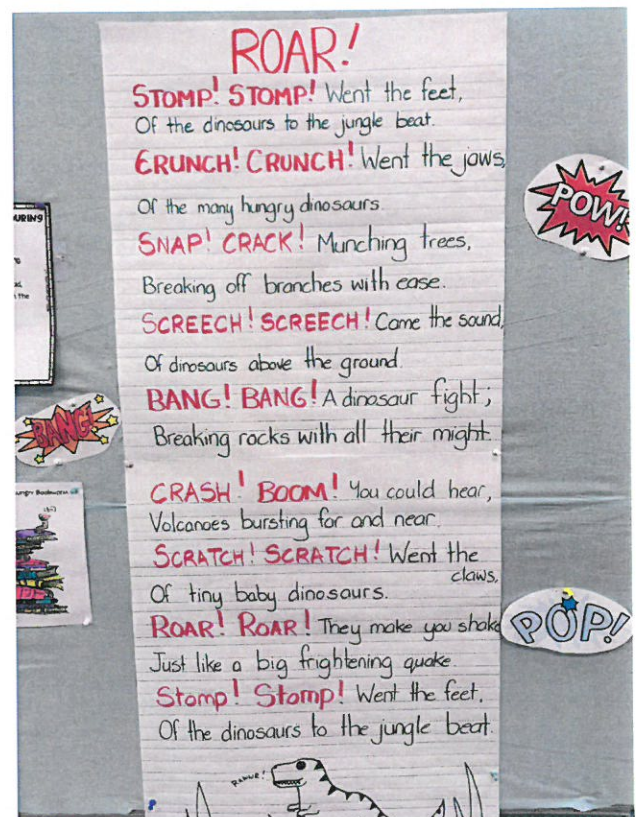 ROAR!
STOMP! STOMP! Went the feet,
Of the dinosaurs to the jungle beat.
CRUNCH! CRUNCH! Went the jaws,
Of the many hungry dinosaurs.
SNAP! CRACK! Munching trees,
Breaking off branches with ease.
SCREECH! SCREECH! Came the sound,
Of dinosaurs above the ground.
BANG! BANG! A dinosaur fight;
Breaking rocks with all their might.
CRASH! BOOM! You could hear,
Volcanoes bursting far and near.
SCRATCH! SCRATCH! Went the
claws,
Of tiny baby dinosaurs.
ROAR! ROAR! They make you shake
Just like a big frightening quake.
Stomp! Stomp! Went the feet,
Of the dinosaurs to the jungle beat.
POW!
BANG!
POP!
Bookworm
the